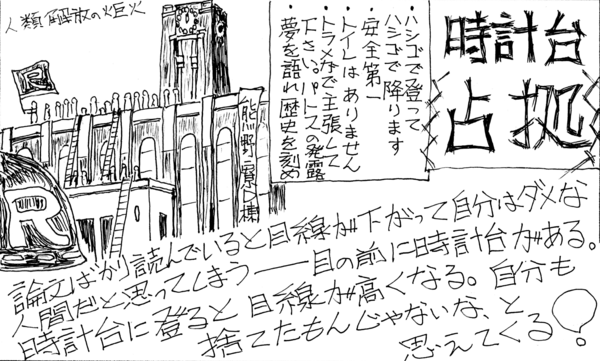 人類解放の炬火
時計台
占拠
・ハシゴで登って
ハシゴで降ります
・安全第一
・トイレはありません
・トラメガで主張して
下さい。パトスの発露
夢を語れ 歴史を刻め
熊野寮 棟
R
論文ばかり読んでいると目線が下がって自分はダメな
人間だと思ってしまう――目の前に時計台がある。
時計台に登ると目線が高くなる。自分も
捨てたもんじゃないな、と
思えてくる